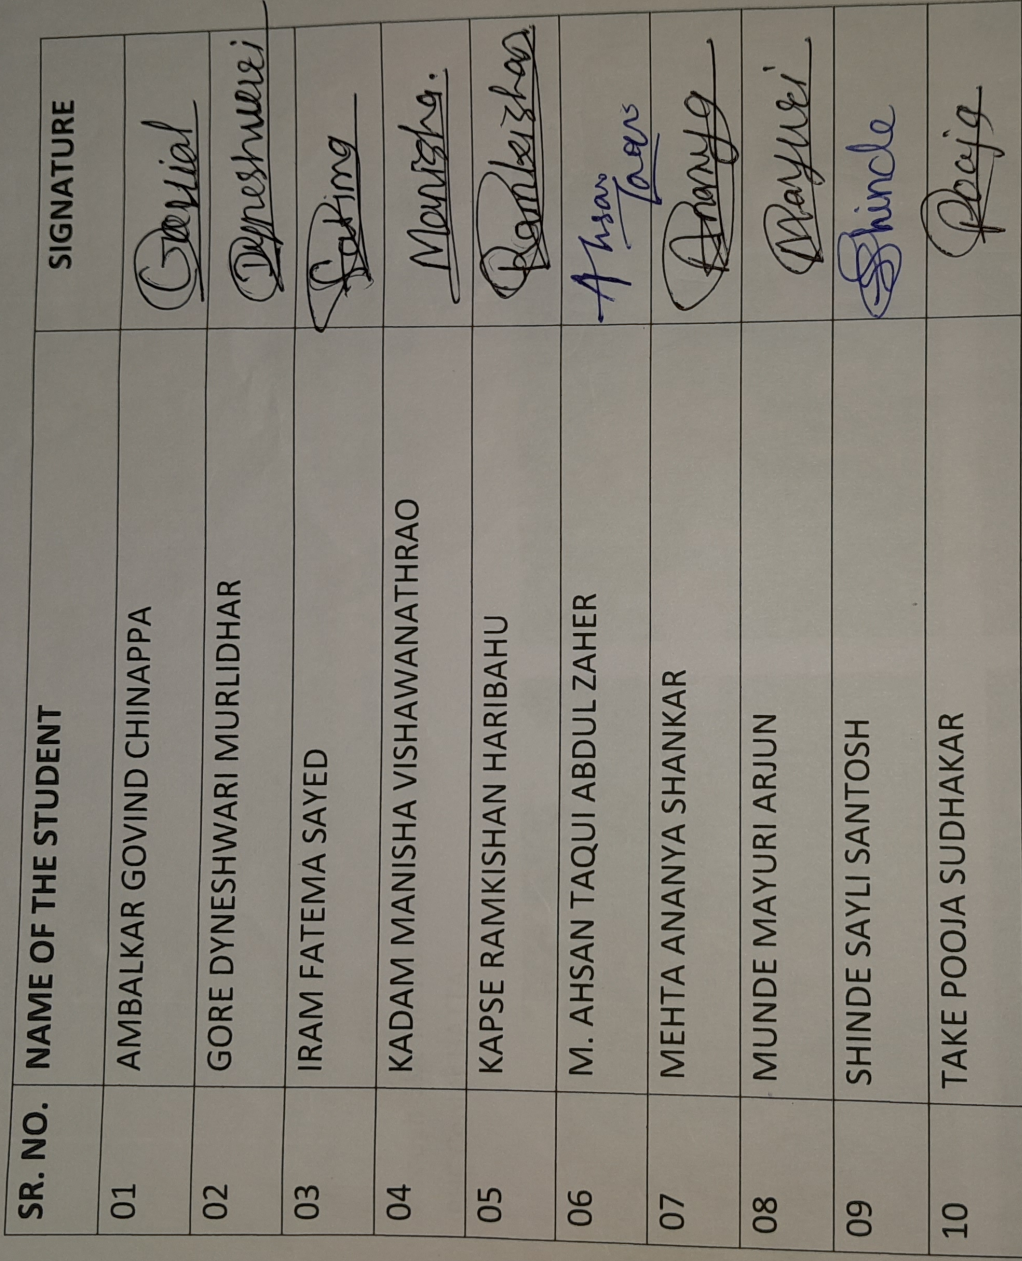 SR. NO. NAME OF THE STUDENT SIGNATURE
01 AMBALKAR GOVIND CHINAPPA
02 GORE DYNESHWARI MURLIDHAR Dyneshweri
03 IRAM FATEMA SAYED
04 KADAM MANISHA VISHAWANATHRAO Manisha.
05 KAPSE RAMKISHAN HARIBAHU
06 M. AHSAN TAQUI ABDUL ZAHER Ahsan
07 MEHTA ANANYA SHANKAR Ananya
08 MUNDE MAYURI ARJUN Mayuri
09 SHINDE SAYLI SANTOSH Shinde
10 TAKE POOJA SUDHAKAR Pooja